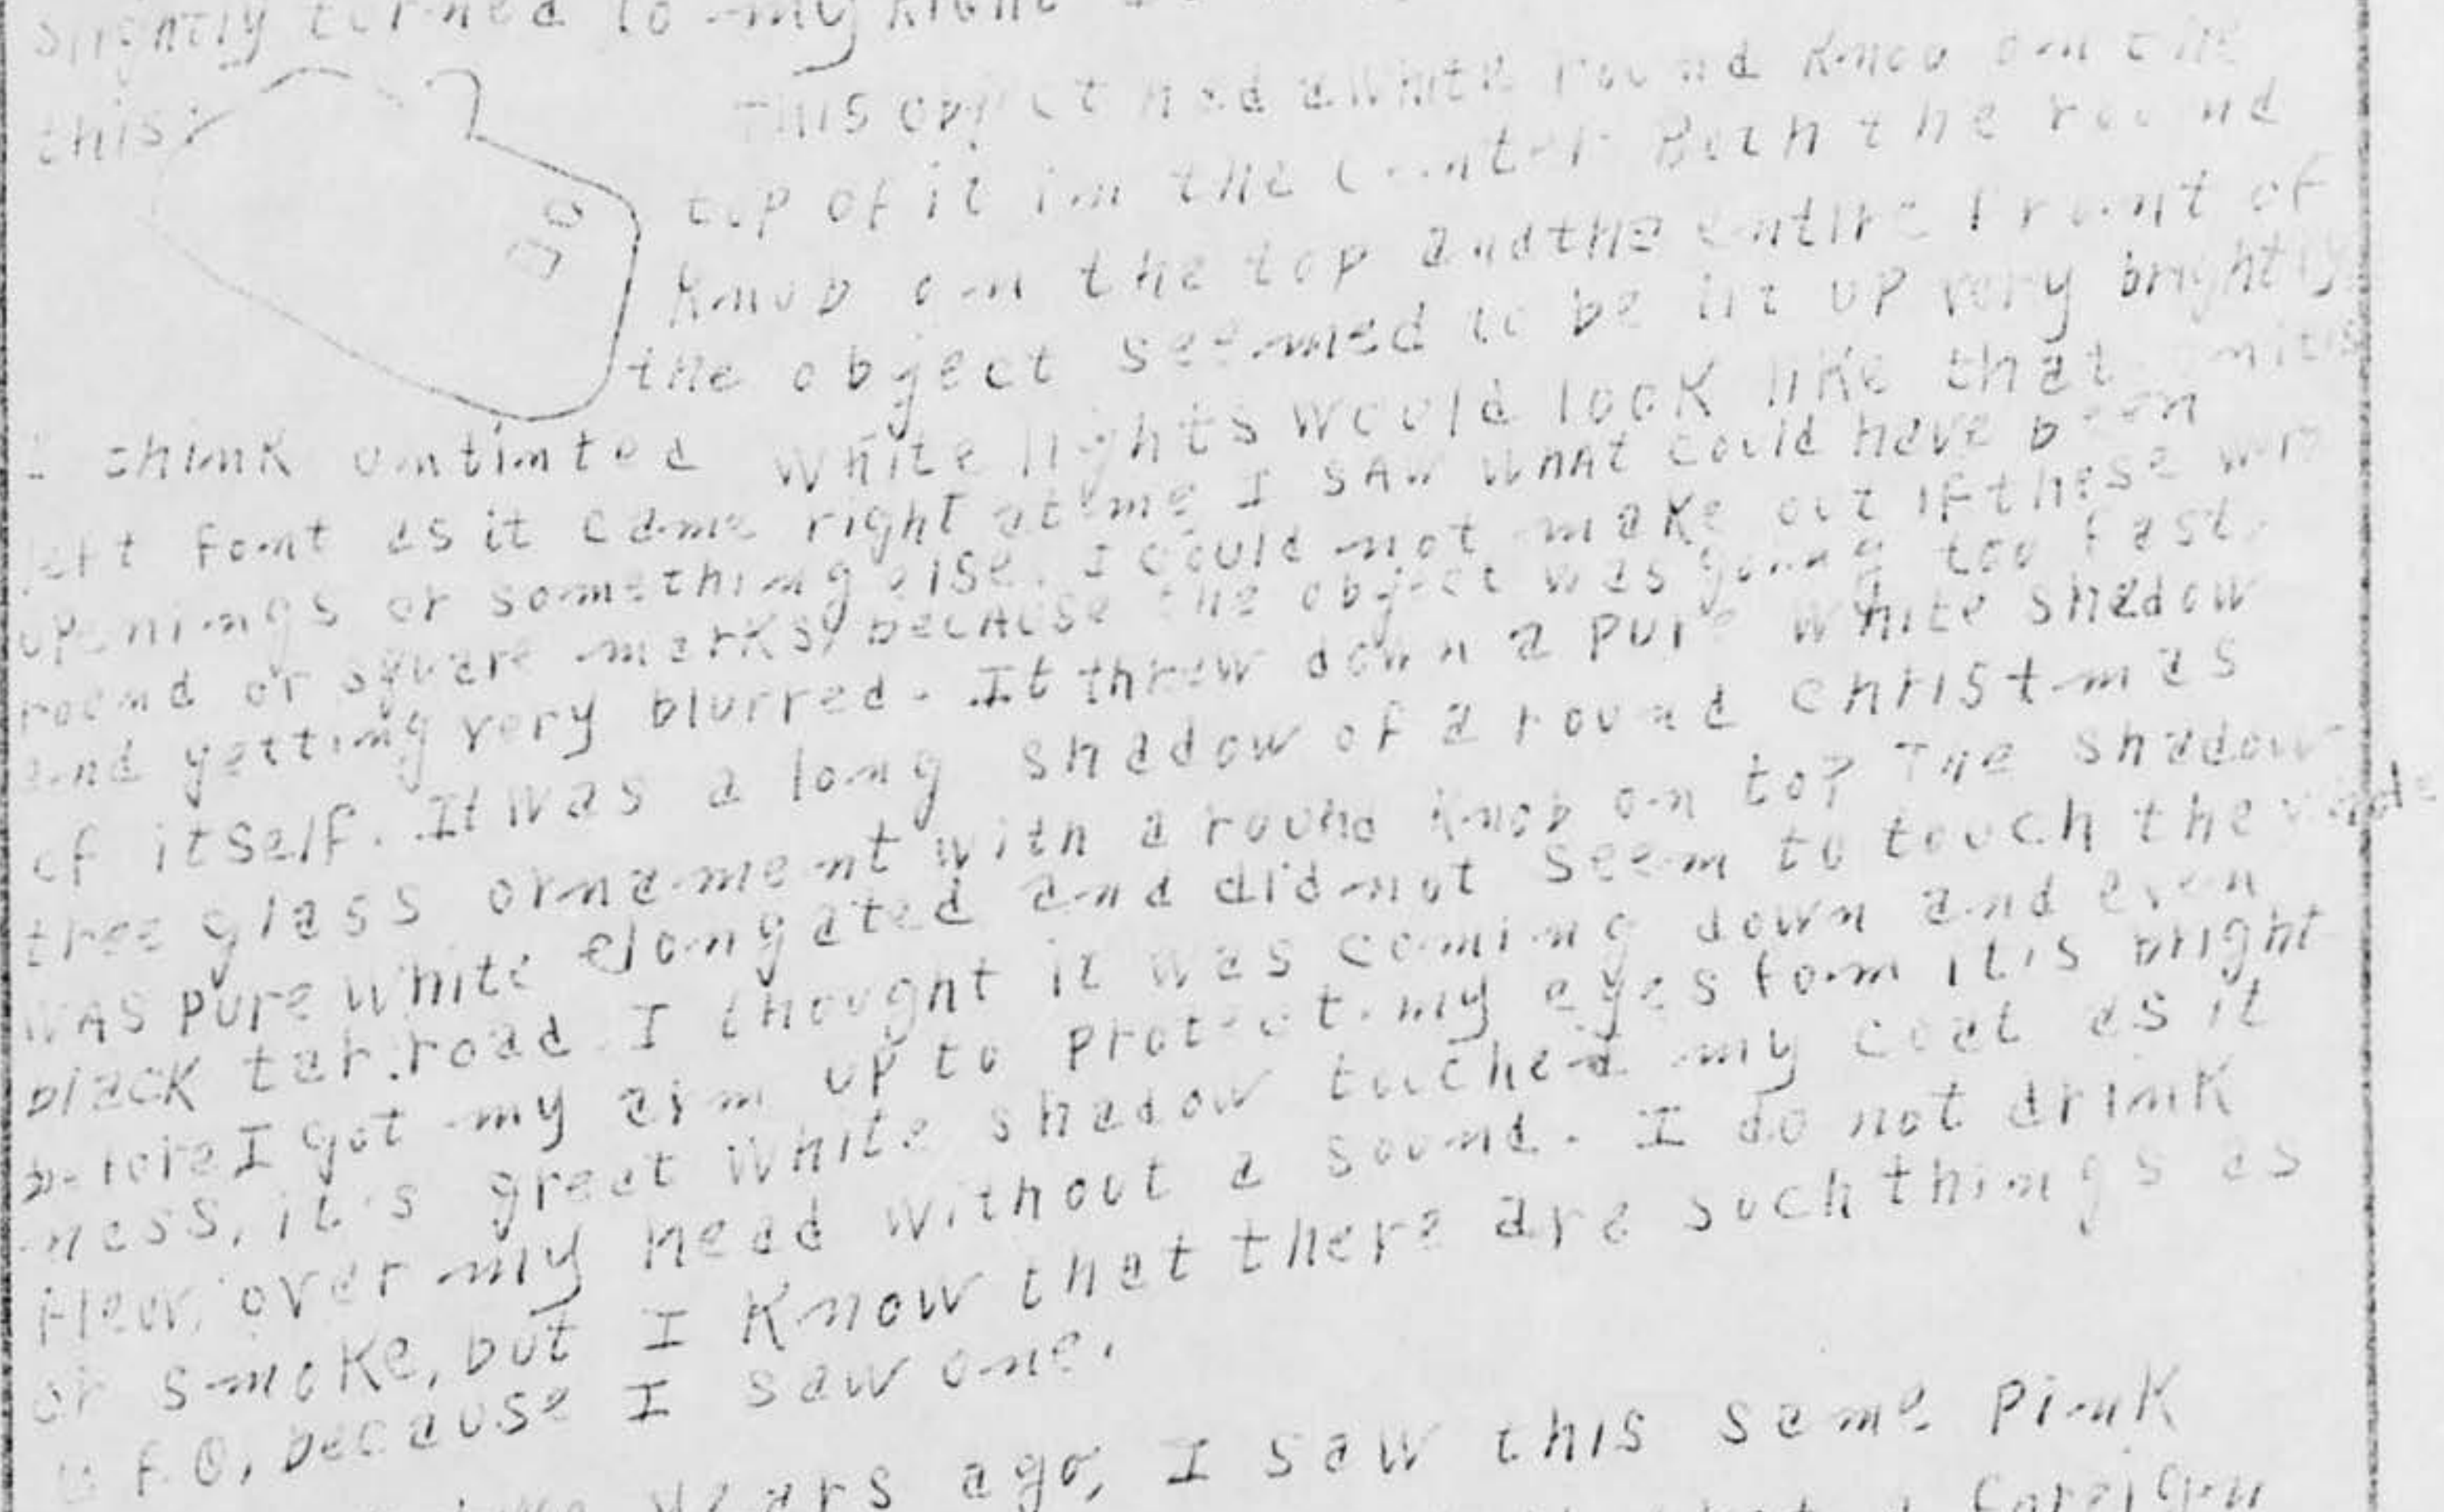 slightly turned to my right
this:
This object had a white round knob on the
top of it in the center Both the round
knob on the top and the entire front of
the object seemed to be lit up very brightly
I think untinted white lights would look like that
left font as it came right at me I saw what could have been
openings or something else. I could not make out if these
round or square marks, because the object was going too fast
and getting very blurred. It threw down a pure white shadow
of itself. It was a long shadow of a round christmas
tree glass ornament with a round knob on top The shadow
was pure white elongated and did not seem to touch the
black tar road I thought it was coming down and even
before I got my arm up to protect my eyes fom it's bright
ness, it's great white shadow touched my coat as it
flew over my head without a sound. I do not drink
or smoke, but I know that there are such things as
U F.O, because I saw one.
years ago, I saw this same pink
foreign